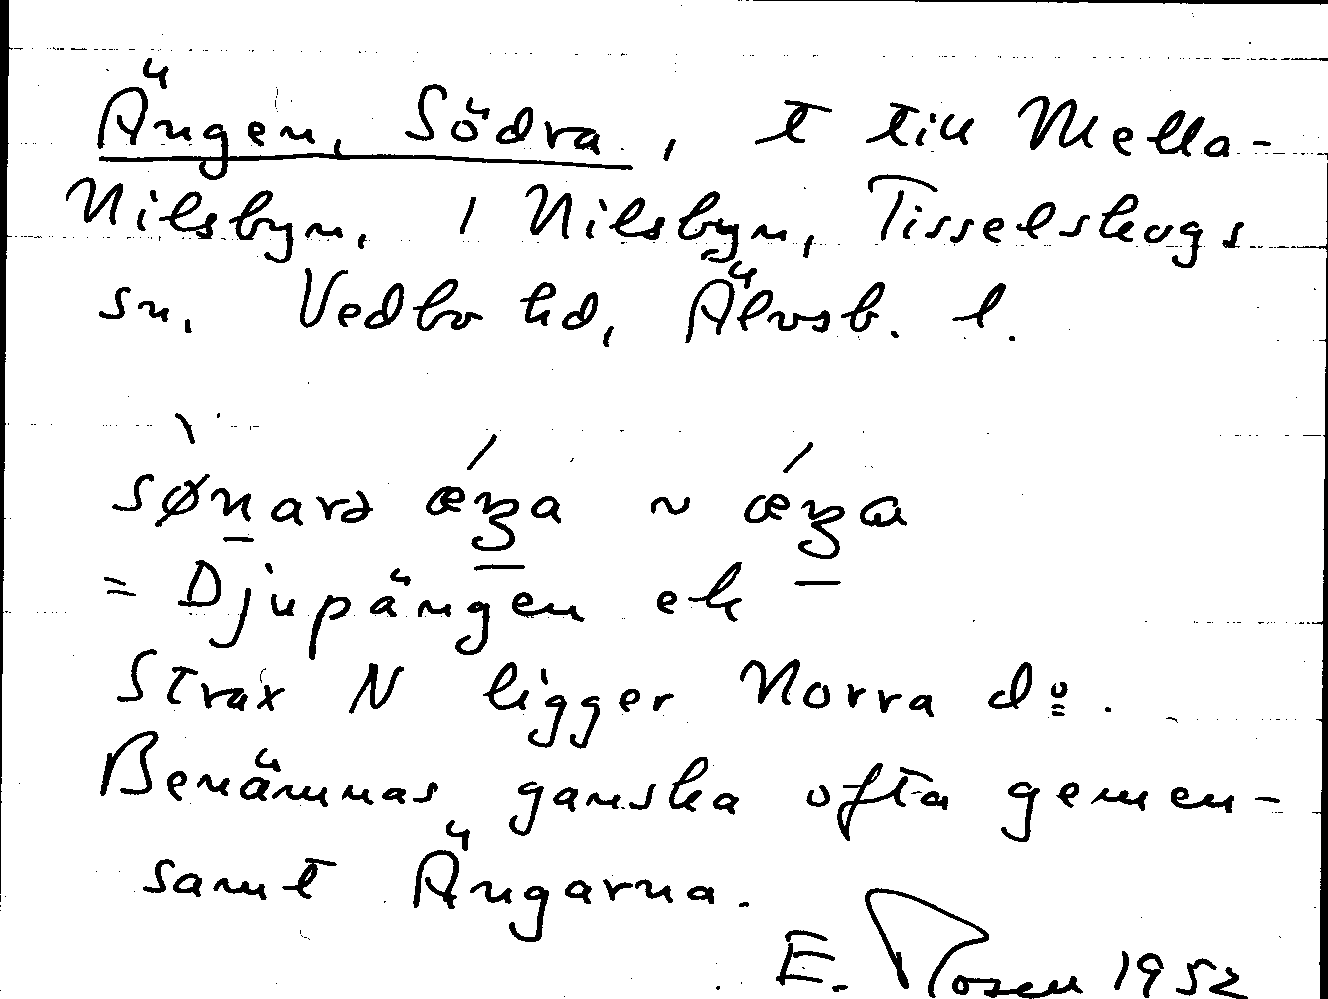 Ängen, Södra, t till Mella-
Nilsbyn, 1 Nilsbyn, Tisselskogs
sn, Vedbo hd, Älvsb. l.
sø̀narə ǽŋa ~ ǽŋɑ
= Djupängen ek
Strax N ligger Norra do.
Benämnas ganska ofta gemen-
samt Ängarna.
E. Rosen 1952